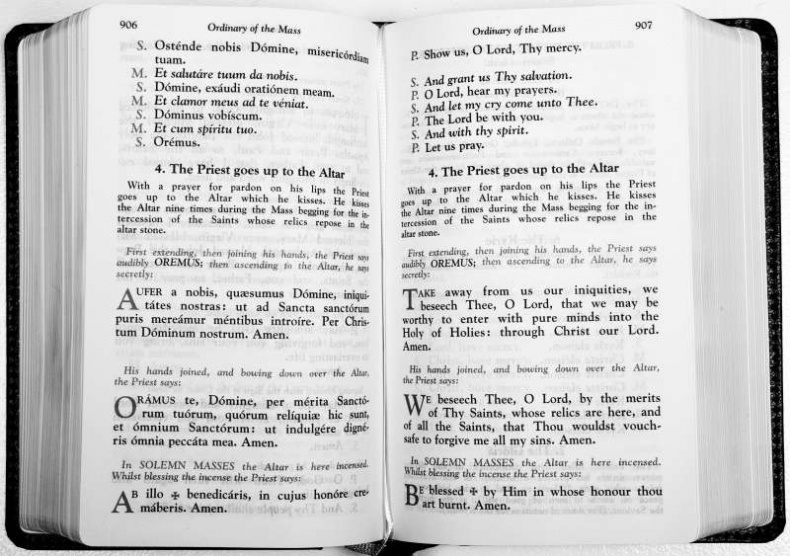 906
Ordinary of the Mass
S. Osténde nobis Dómine, misericórdiam
tuam.
M. Et salutáre tuum da nobis.
S. Dómine, exáudi oratiónem meam.
M. Et clamor meus ad te véniat.
S. Dóminus vobíscum.
M. Et cum spíritu tuo.
S. Orémus.
4. The Priest goes up to the Altar
With a prayer for pardon on his lips the Priest
goes up to the Altar which he kisses. He kisses
the Altar nine times during the Mass begging for the in-
tercession of the Saints whose relics repose in the
altar stone.
First extending, then joining his hands, the Priest says
audibly OREMUS; then ascending to the Altar, he says
secretly:
AUFER a nobis, quæsumus Dómine, iniqui-
tátes nostras: ut ad Sancta sanctórum
puris mereámur méntibus introíre. Per Chris-
tum Dóminum nostrum. Amen.
His hands joined, and bowing down over the Altar,
the Priest says:
ORÁMUS te, Dómine, per mérita Sanctó-
rum tuórum, quórum relíquiæ hic sunt,
et ómnium Sanctórum: ut indulgére digné-
ris ómnia peccáta mea. Amen.
In SOLEMN MASSES the Altar is here incensed.
Whilst blessing the incense the Priest says:
AB illo ✠ benedicáris, in cujus honóre cre-
máberis. Amen.
Ordinary of the Mass
907
P. Show us, O Lord, Thy mercy.
S. And grant us Thy salvation.
P. O Lord, hear my prayers.
S. And let my cry come unto Thee.
P. The Lord be with you.
S. And with thy spirit.
P. Let us pray.
4. The Priest goes up to the Altar
With a prayer for pardon on his lips the Priest
goes up to the Altar which he kisses. He kisses
the Altar nine times during the Mass begging for the in-
tercession of the Saints whose relics repose in the
altar stone.
First extending, then joining his hands, the Priest says
audibly OREMUS; then ascending to the Altar, he says
secretly:
TAKE away from us our iniquities, we
beseech Thee, O Lord, that we may be
worthy to enter with pure minds into the
Holy of Holies: through Christ our Lord.
Amen.
His hands joined, and bowing down over the Altar,
the Priest says:
WE beseech Thee, O Lord, by the merits
of Thy Saints, whose relics are here, and
of all the Saints, that Thou wouldst vouch-
safe to forgive me all my sins. Amen.
In SOLEMN MASSES the Altar is here incensed.
Whilst blessing the incense the Priest says:
BE blessed ✠ by Him in whose honour thou
art burnt. Amen.